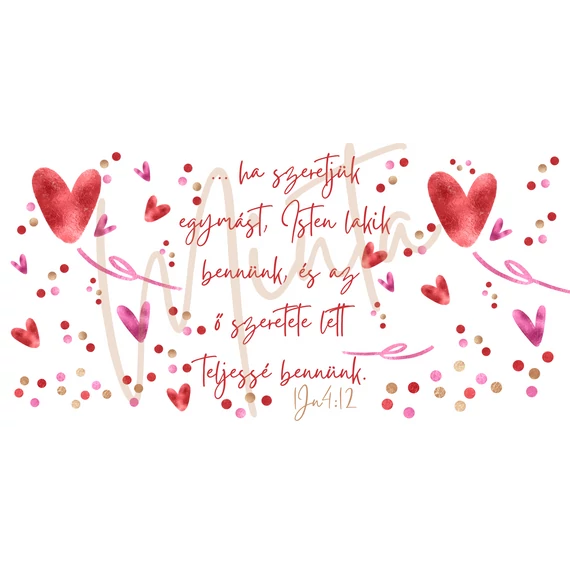 ... ha szeretjük
egymást, Isten lakik
bennünk, és az
ő szeretete lett
teljessé bennünk.
1Jn4:12
Minta